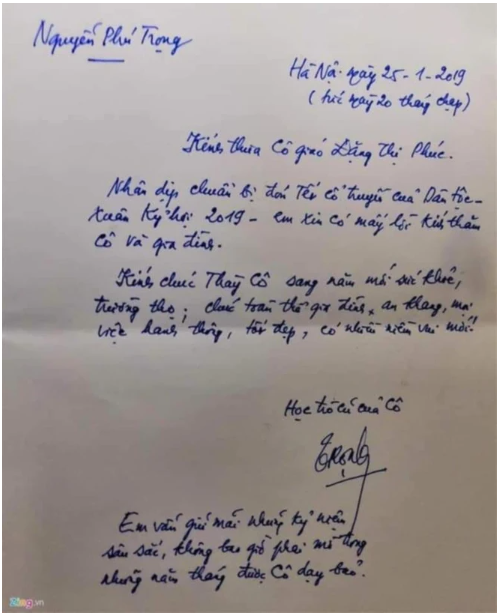 Nguyễn Phú Trọng
Hà Nội ngày 25-1-2019
(tức ngày 20 tháng chạp)
Kính thưa Cô giáo Đặng Thị Phúc.
Nhân dịp chuẩn bị đón Tết cổ truyền của Dân tộc -
Xuân Kỷ hợi 2019 - em xin có mấy lời kính thăm
Cô và gia đình.
Kính chúc Thày Cô sang năm mới sức khỏe,
trường thọ; chúc toàn thể gia đình an khang, mọi
việc hanh thông, tốt đẹp, có nhiều niềm vui mới!
Học trò cũ của Cô
Trọng
Em vẫn giữ mãi những kỷ niệm
sâu sắc, không bao giờ phai mờ trong
những năm tháng được Cô dạy bảo.
Zing.vn